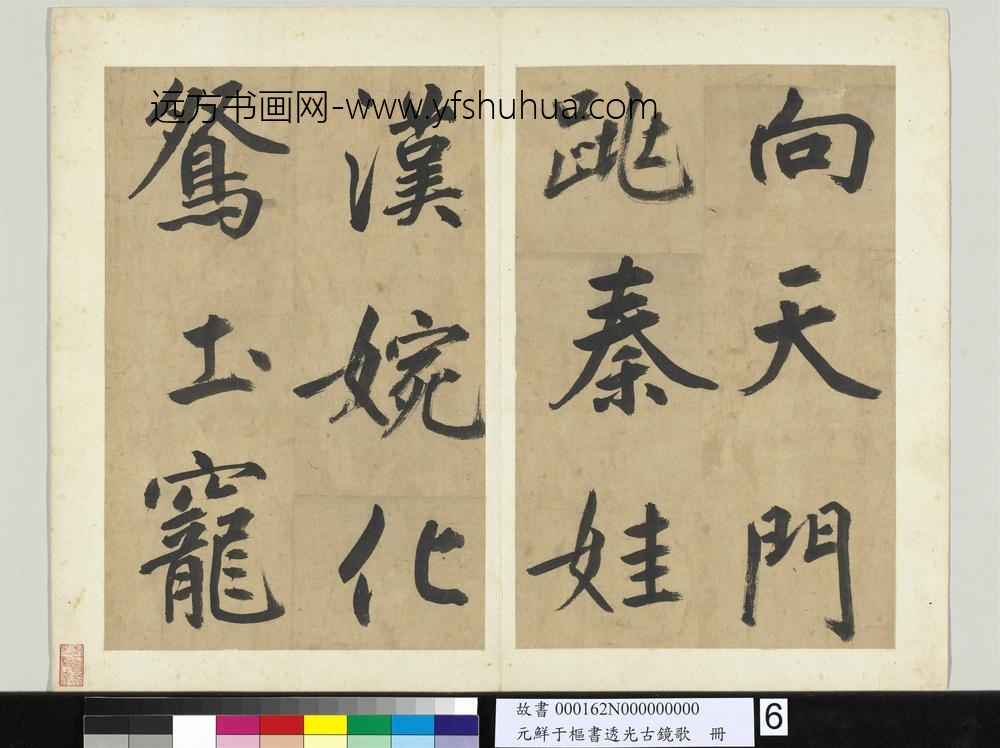 远方书画网-www.yfshuhua.com
向天門
跳秦娃
漢婉化
鴛土竉
故書 000162N000000000
元鮮于樞書透光古鏡歌 冊
6